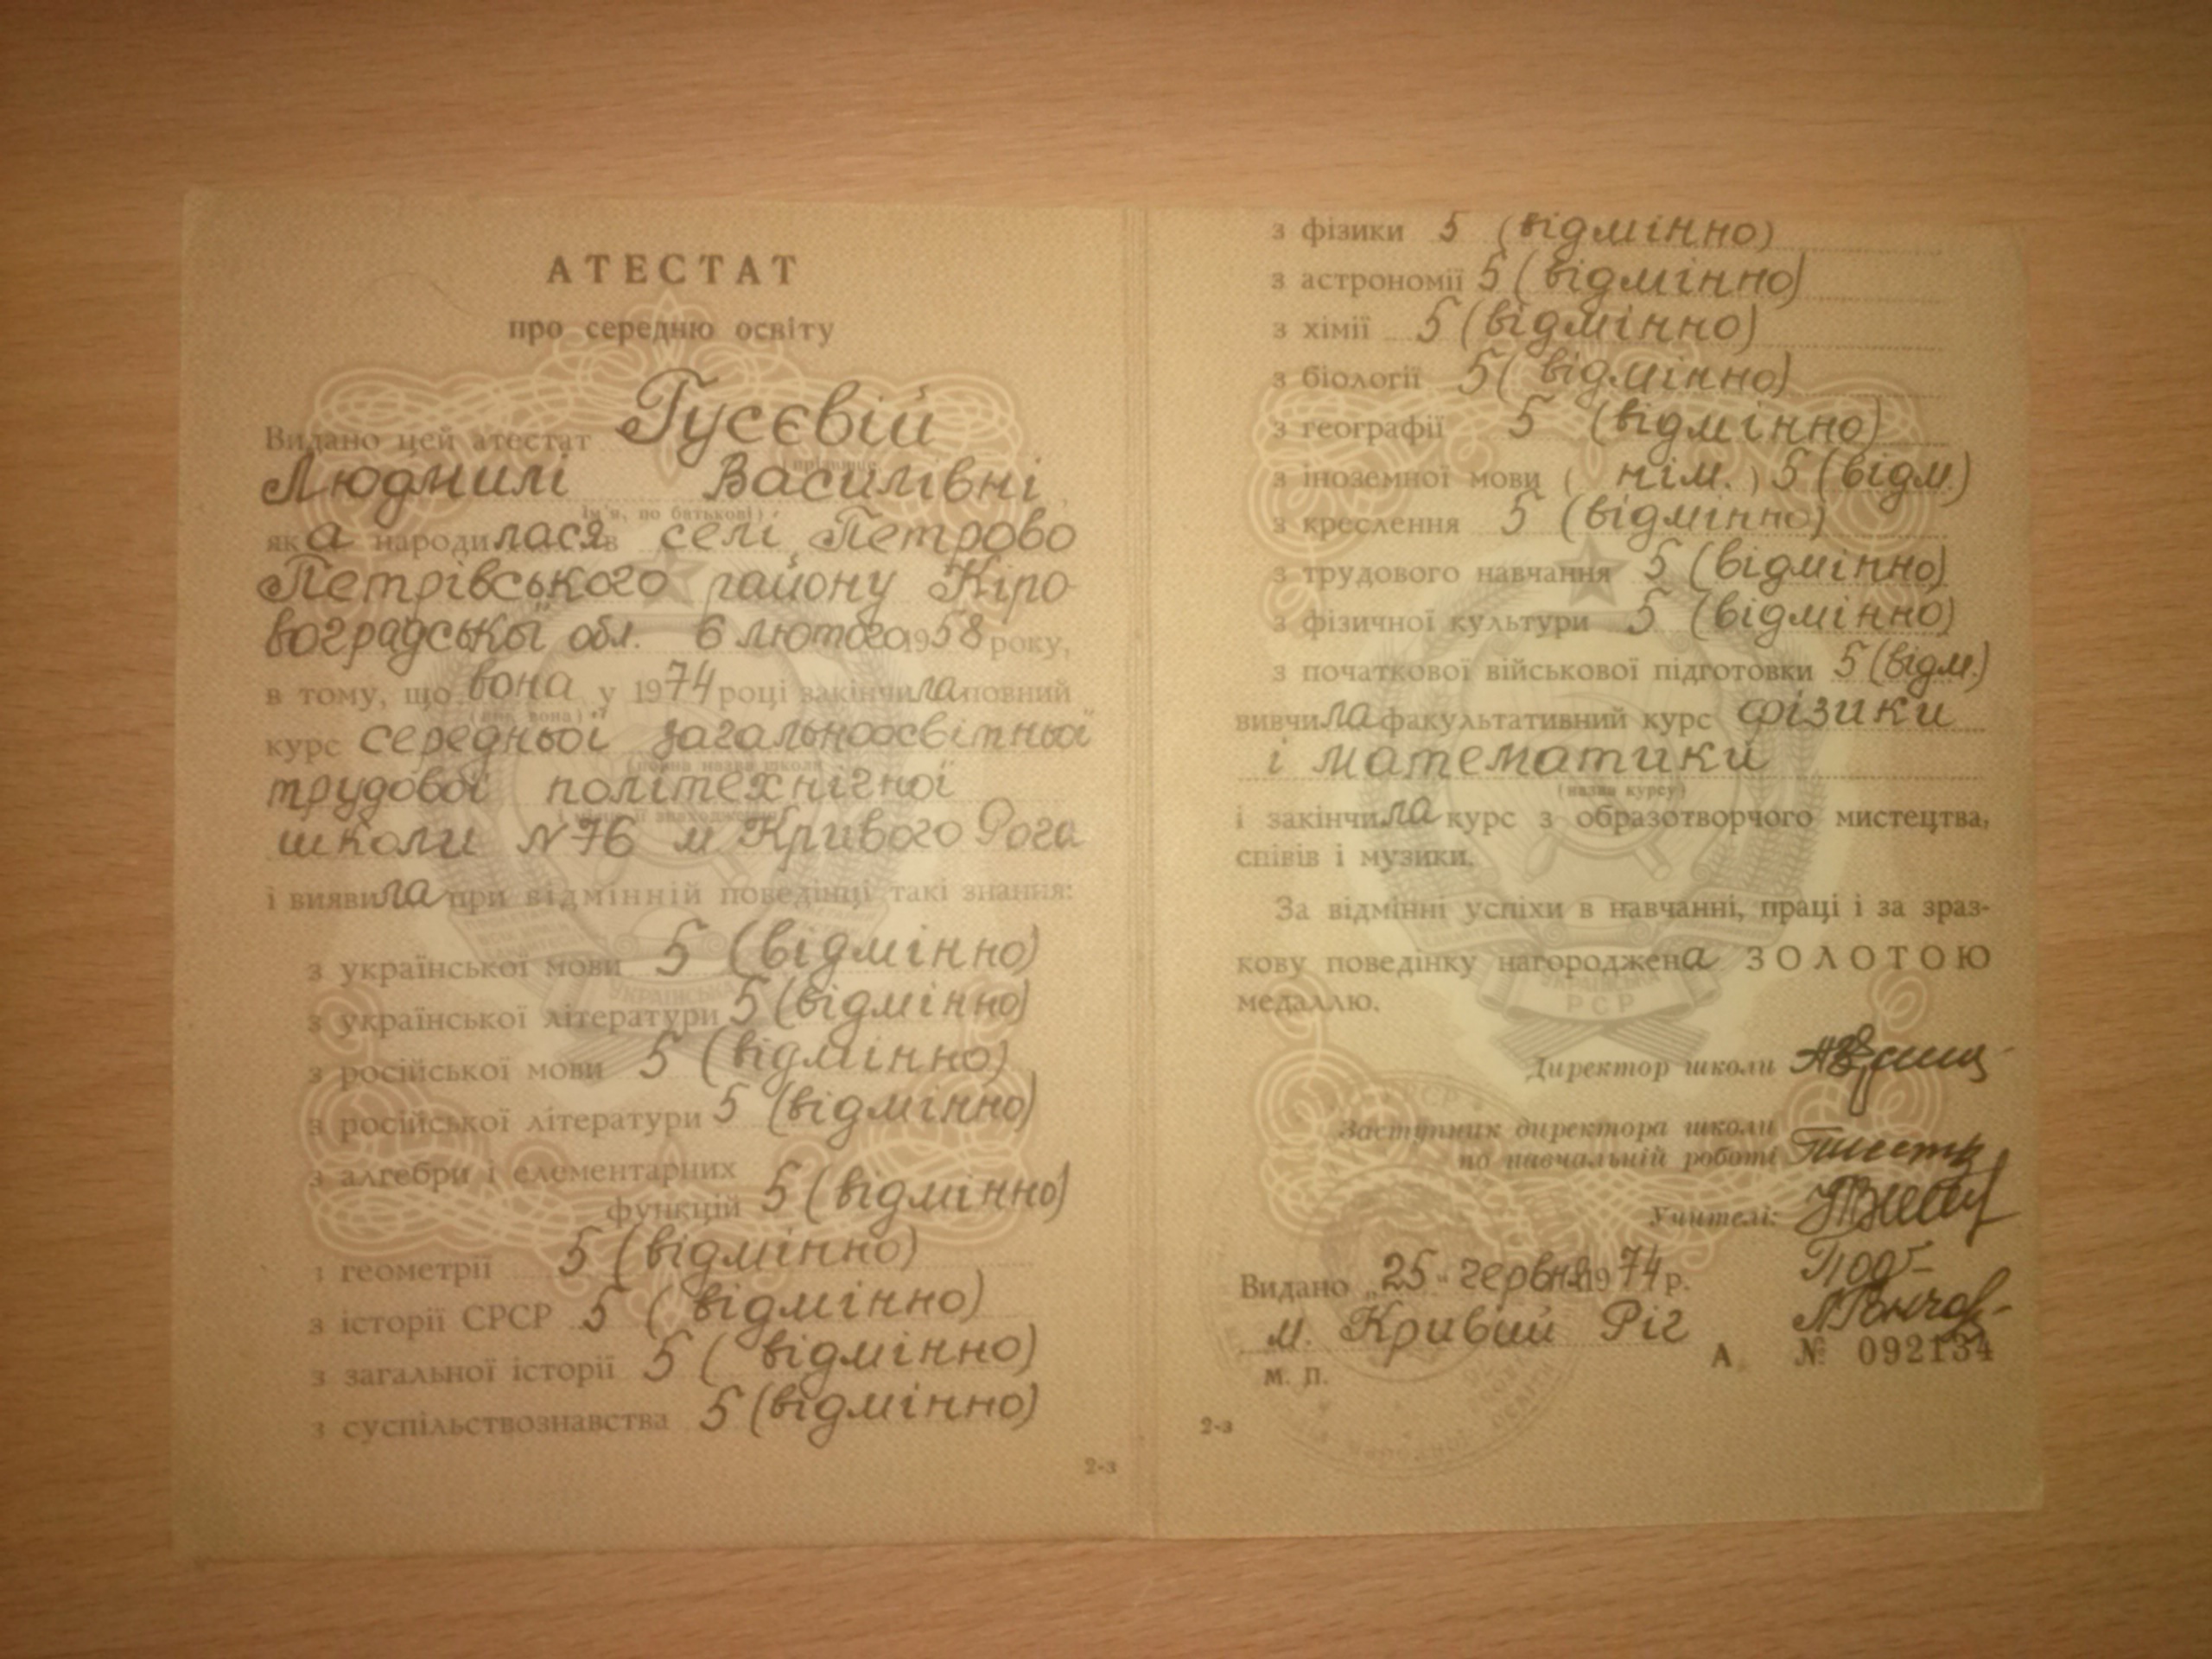 АТЕСТАТ
про середню освіту
Видано цей атестат Гусєвій
Людмилі Василівні,
ім'я, по батькові
яка народилася в селі Петрово
Петрівського району Кіро-
воградської обл. 6 лютого 1958 року,
в тому, що вона у 1974 році закінчила повний
(він, вона)
курс середньої загальноосвітньої
(повна назва школи
трудової політехнічної
і місце її знаходження)
школи №76 м. Кривого Рога
і виявила при відмінній поведінці такі знання:
з української мови 5 (відмінно)
з української літератури 5 (відмінно)
з російської мови 5 (відмінно)
з російської літератури 5 (відмінно)
з алгебри і елементарних
функцій 5 (відмінно)
з геометрії 5 (відмінно)
з історії СРСР 5 (відмінно)
з загальної історії 5 (відмінно)
з суспільствознавства 5 (відмінно)
2-з
з фізики 5 (відмінно)
з астрономії 5 (відмінно)
з хімії 5 (відмінно)
з біології 5 (відмінно)
з географії 5 (відмінно)
з іноземної мови (нім.) 5 (відм.)
з креслення 5 (відмінно)
з трудового навчання 5 (відмінно)
з фізичної культури 5 (відмінно)
з початкової військової підготовки 5 (відм.)
вивчила факультативний курс фізики
і математики
(назва курсу)
і закінчила курс з образотворчого мистецтва,
співів і музики.
За відмінні успіхи в навчанні, праці і за зраз-
кову поведінку нагороджена ЗОЛОТОЮ
УКРАЇНСЬКА
РСР
медаллю.
Директор школи
Заступник директора школи
по навчальній роботі
Учителі:
Видано „25" червня 1974 р.
м. Кривий Ріг
А № 092134
М. П.
2-з